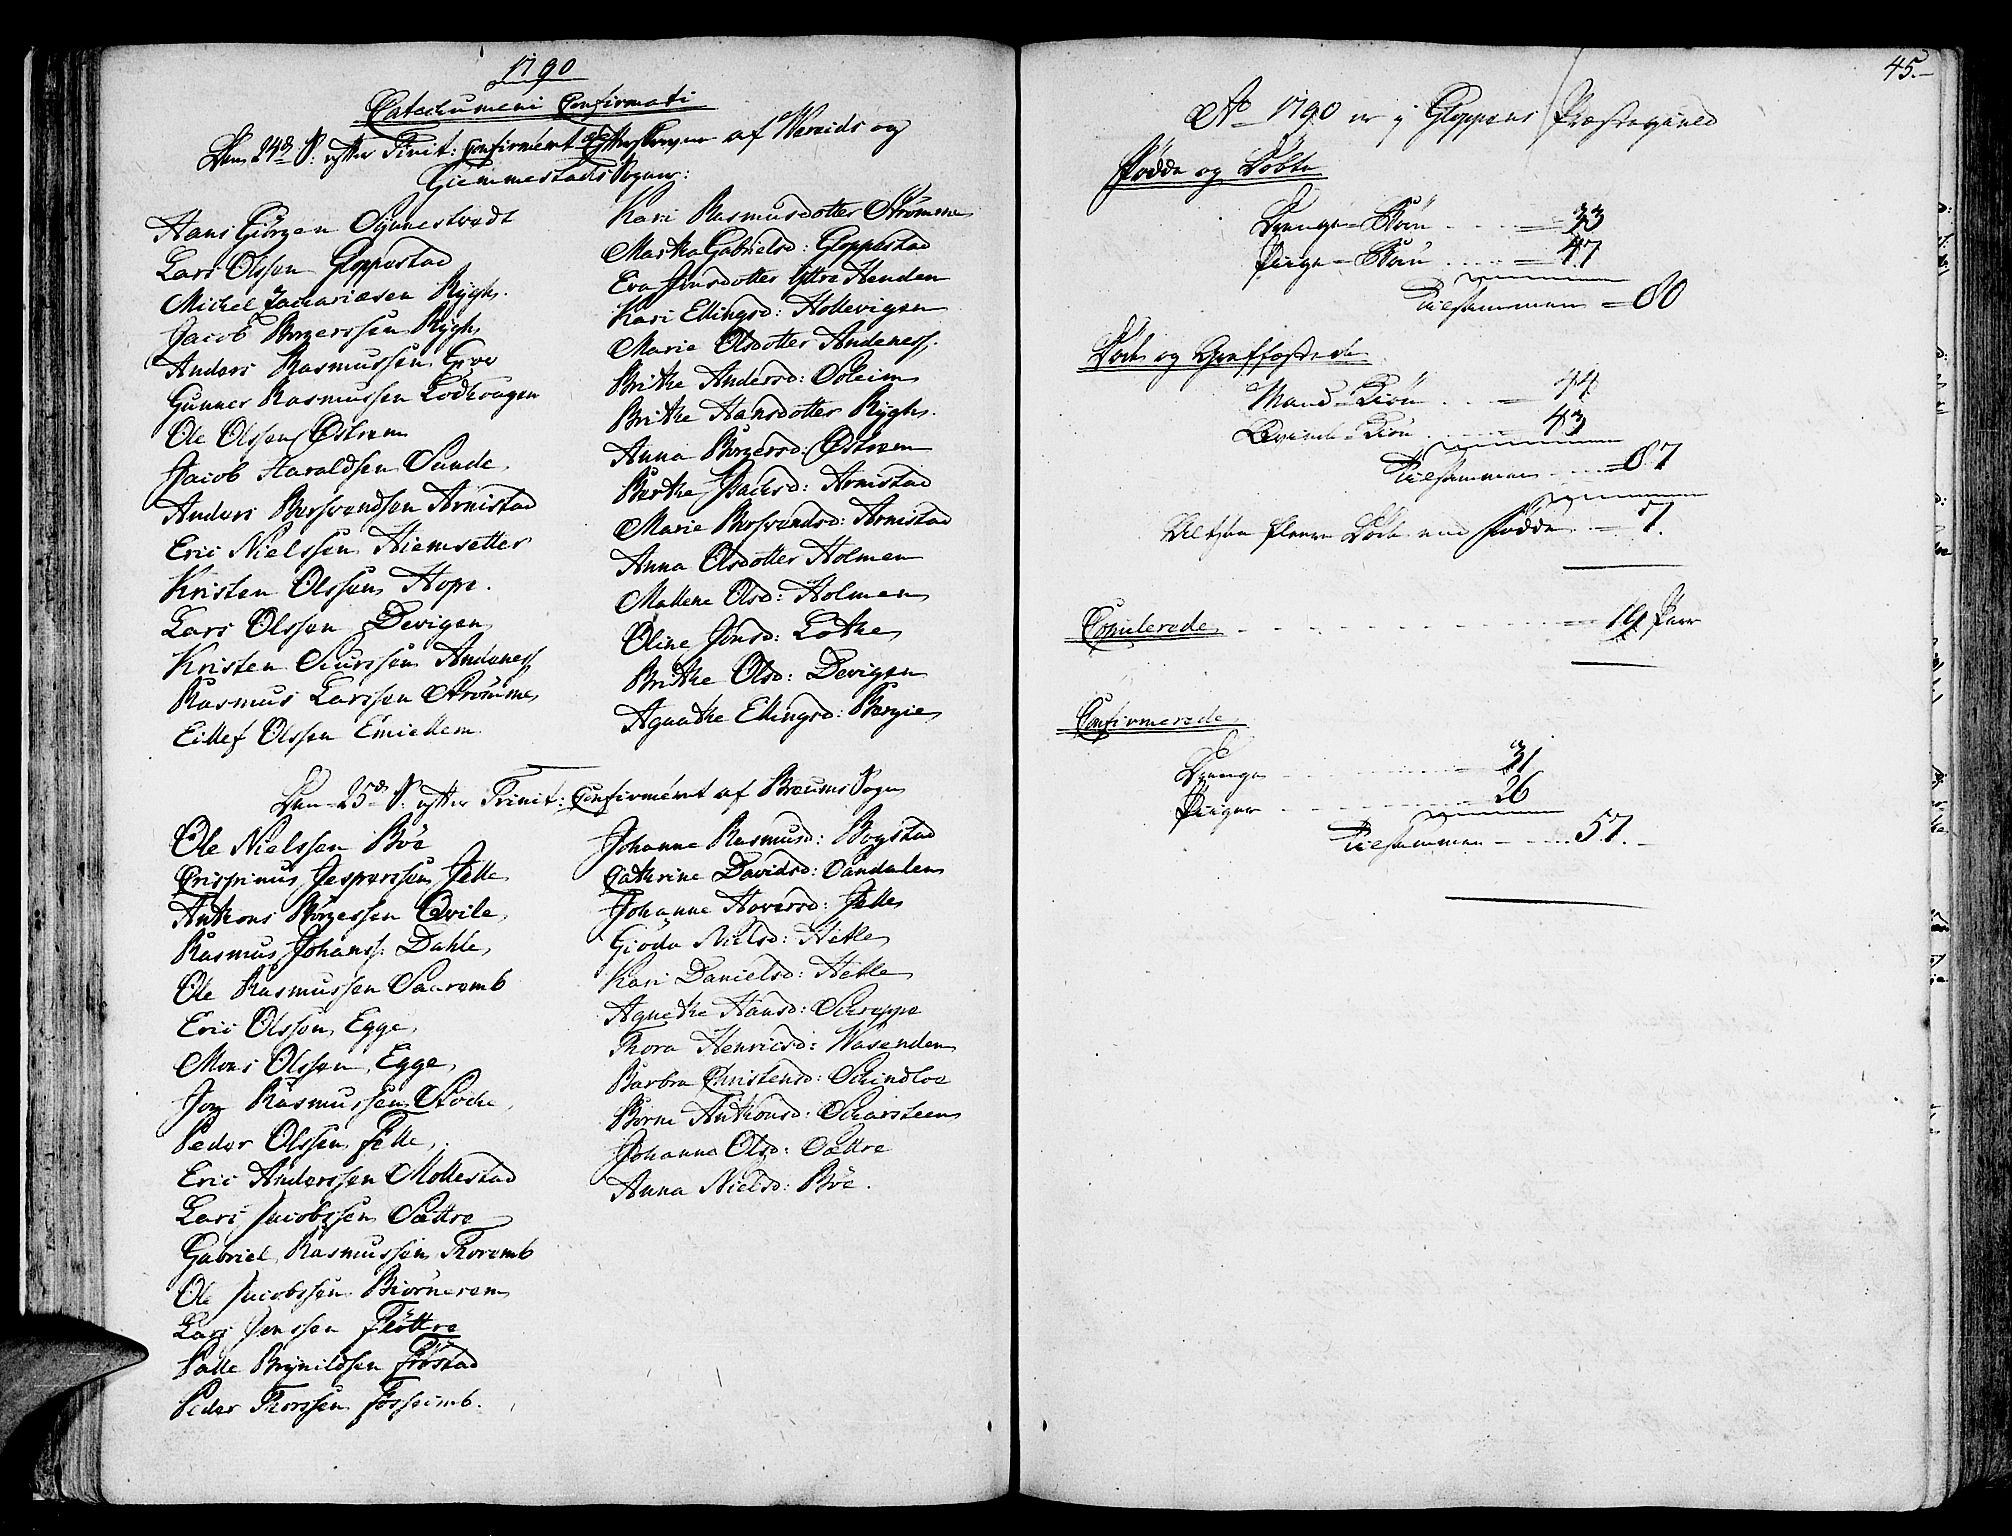 1790
Catechumeni Confirmati
Den 24de S. efter Trinit: Confirmert efterskrevne af Wereids og
Giemmestads Sogner:
Hans Giörgen Synnestvedt
Lars Olssen Gloppestad
Michel Zachariæsen Rygh.
Jacob Börgerssen Rygh,
Anders Rasmussen Eive
Gunner Rasmussen Lodkongen
Ole Olssen Østrem
Jacob Haraldsen Sande,
Anders Bersvendsen Arnistad
Eric Nielssen Hiemsetter
Kristen Olssen Hope.
Lars Olssen Devigen,
Kristen Siurssen Andenes
Rasmus Larssen Strömme,
Eillef Olssen Emiellem.
Kari Rasmusdotter Strömme
Martha Gabrielsd: Gloppestad
Eva Jonsdotter Yttre Henden
Kari Ellingsd: Hollevigen
Marie Olsdotter Andenes.
Brithe Andersd: Soleim
Brithe Hansdotter Rygh.
Anna Börgersd: Østrem
Berthe Jsachsd: Arnistad
Marie Bersvendsd: Arnistad
Anna Olsdotter Holmen
Mallene Olsd: Holmen
Oline Jonsd: Lothe,
Brithe Olsd: Devigen
Agnethe Ellingsd: Bergie,
Den 25de S. efter Trinit: Confirmért af Breums Sogn
Ole Nielssen Böe
Crispinus Jesperssen Jelle
Anthoni Börgessen Qvile,
Rasmus Johanss: Dahle,
Ole Rasmussen Saaremb
Eric Olssen, Egge,
Mons Olssen, Egge,
Jon Rasmussen Stocke,
Peder Olssen, Felle,
Eric Anderssen Mollestad
Lars Jacobssen Sættre
Gabriel Rasmussen, Thoremb
Ole Jacobssen Biörnerem
Lars Jenssen Flöttre
Salle Brynildsen Fiöstad
Peder Thorssen Fosseimb.
Johanne Rasmusd: Bogstad
Cathrine Davidsd: Sandalen
Johanne Haversd: Jelle,
Giöda Nielsd: Hetle,
Kari Danielsd: Hetle,
Agnethe Hansd: Schreppe
Thora Henricsd: Wasenden
Barbra Christensd: Schindloe
Börne Anthonsd: Scharsteen
Johanne Olsd: Sættre
Anna Nielsd: Böe.
45.
Ao 1790 er i Gloppens Præstegield
Födde og Döbte
Drenge-Börn .... = 33
Pige-Börn .... = 47
Tilsammen = 80
Döde og Graffæstede
Mand-Kiön ... = 44
Qvinde-Kiön ... 43
Tilsammen .... = 87
Altsaa fleere Döde end födde .. = 7.
Copulerede, - - - - - - - - = 19 Parr
Confirmerede,
Drenge .......... 31
Piiger .......... 26
Tilsammen - .... 57.